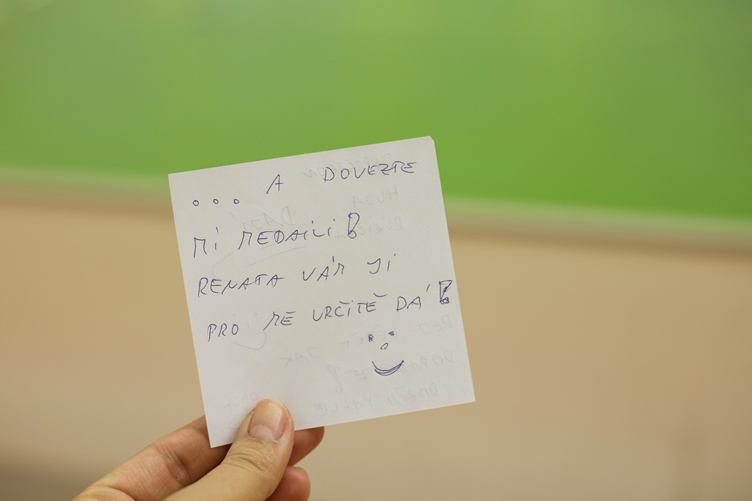 ... A DOVEZTE
MI MEDAILI!
RENATA VÁM JI
PRO MĚ URČITĚ DÁ!